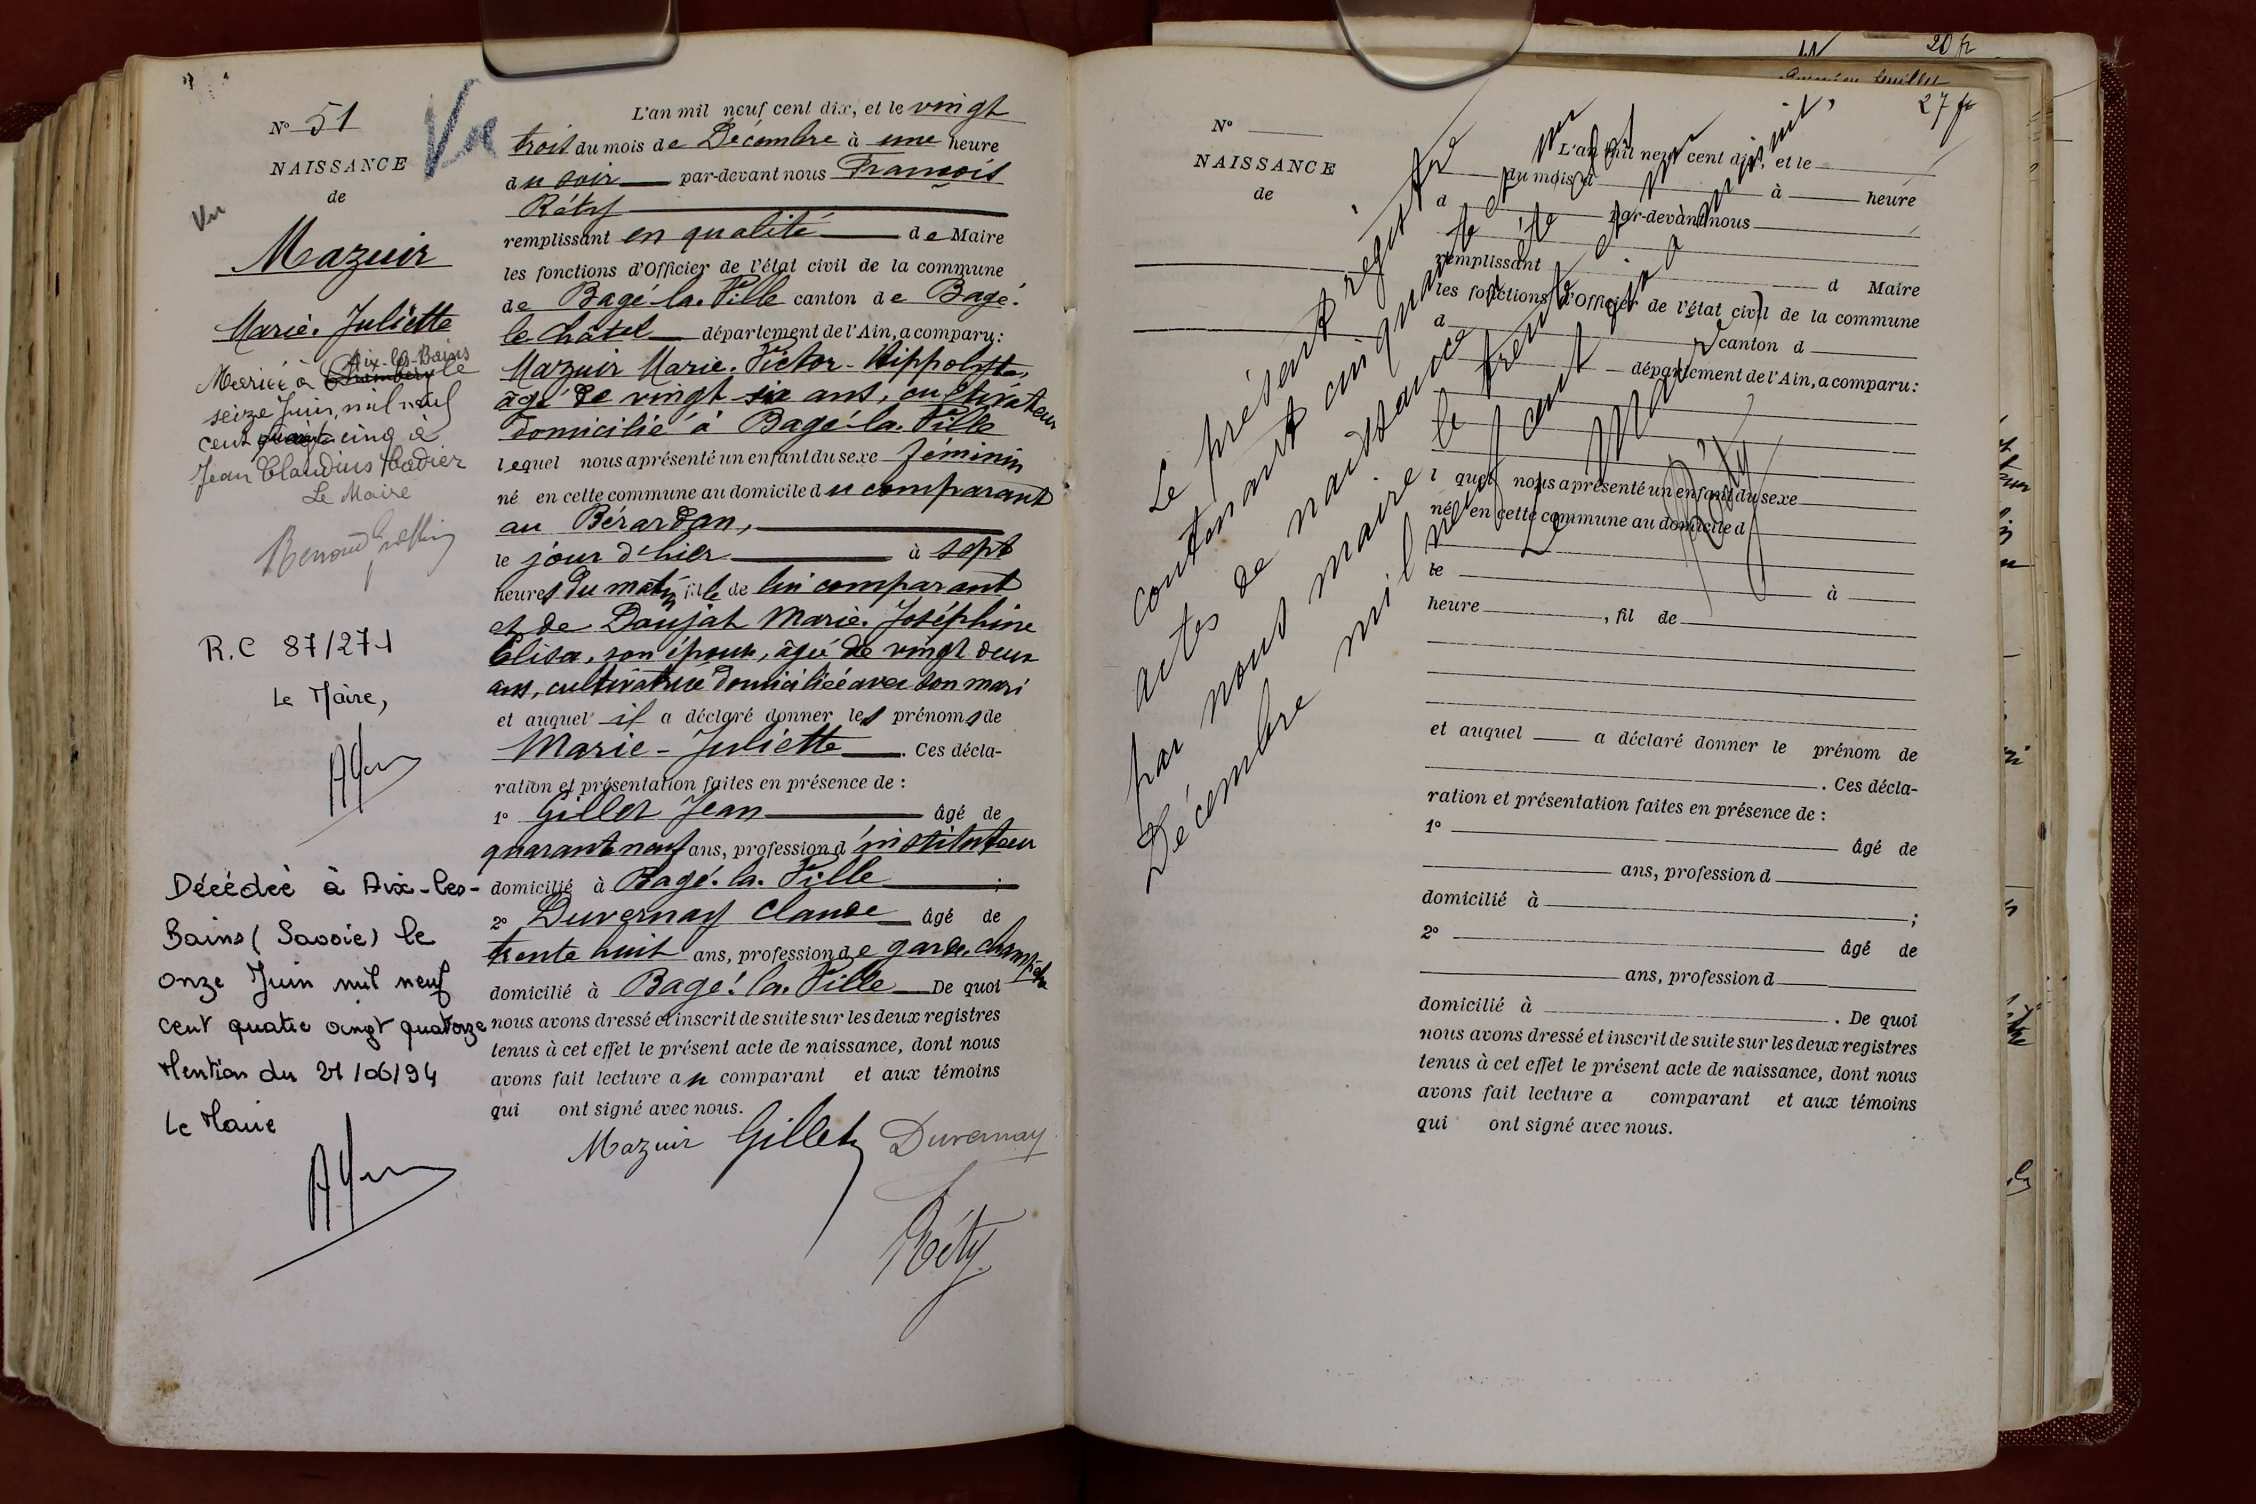 N° 51
NAISSANCE
de
Vu
Mazuir
Marie-Juliette
Mariée à Chambéry le
Aix-les-Bains
seize Juin mil neuf
cent cinq à
Jean Claudius Hadier
Le Maire
R.C 87/271
Le Maire,
Décédée à Aix-les-
Bains (Savoie) le
onze Juin mil neuf
cent quatre vingt quatorze
Mention du 21/06/94
Le Maire
Vu
L'an mil neuf cent dix, et le vingt
trois du mois de Décembre à une heure
du soir par-devant nous François
Réty
remplissant en qualité de Maire
les fonctions d'Officier de l'état civil de la commune
de Bagé-la-Ville canton de Bagé-
le Châtel département de l'Ain, a comparu:
Mazuir Marie-Victor-Hippolyte,
âgé de vingt six ans, cultivateur
domicilié à Bagé-la-Ville
lequel nous a présenté un enfant du sexe féminin
né en cette commune au domicile du comparant
au Bérardan,
le jour d'hier à sept
heures du matin fille de lui comparant
et de Daujat Marie-Joséphine
Elisa, son épouse, âgée de vingt deux
ans, cultivatrice domiciliée avec son mari
et auquel il a déclaré donner les prénoms de
Marie-Juliette. Ces décla-
ration et présentation faites en présence de:
1° Gillet Jean âgé de
quarante neuf ans, profession d'instituteur
domicilié à Bagé-la-Ville;
2° Duvernay Claude âgé de
trente huit ans, profession de garde champêtre
domicilié à Bagé-la-Ville De quoi
nous avons dressé et inscrit de suite sur les deux registres
tenus à cet effet le présent acte de naissance, dont nous
avons fait lecture au comparant et aux témoins
qui ont signé avec nous.
Mazuir Gillet Duvernay
Réty
20 fr
27 fr
N°
NAISSANCE
de
L'an mil neuf cent dix, et le
du mois d à heure
d par-devant nous
remplissant d Maire
les fonctions d'Officier de l'état civil de la commune
d canton d
département de l'Ain, a comparu:
l quel nous a présenté un enfant du sexe
né en cette commune au domicile d
le à
heure, fil de
et auquel a déclaré donner le prénom de
. Ces décla-
ration et présentation faites en présence de:
1° âgé de
ans, profession d
domicilié à ;
2° âgé de
ans, profession d
domicilié à . De quoi
nous avons dressé et inscrit de suite sur les deux registres
tenus à cet effet le présent acte de naissance, dont nous
avons fait lecture a comparant et aux témoins
qui ont signé avec nous.
Le présent registre
contenant cinquante et un
actes de naissance a été clos
par nous maire le trente et un
Décembre mil neuf cent dix à minuit,
Le Maire
Réty